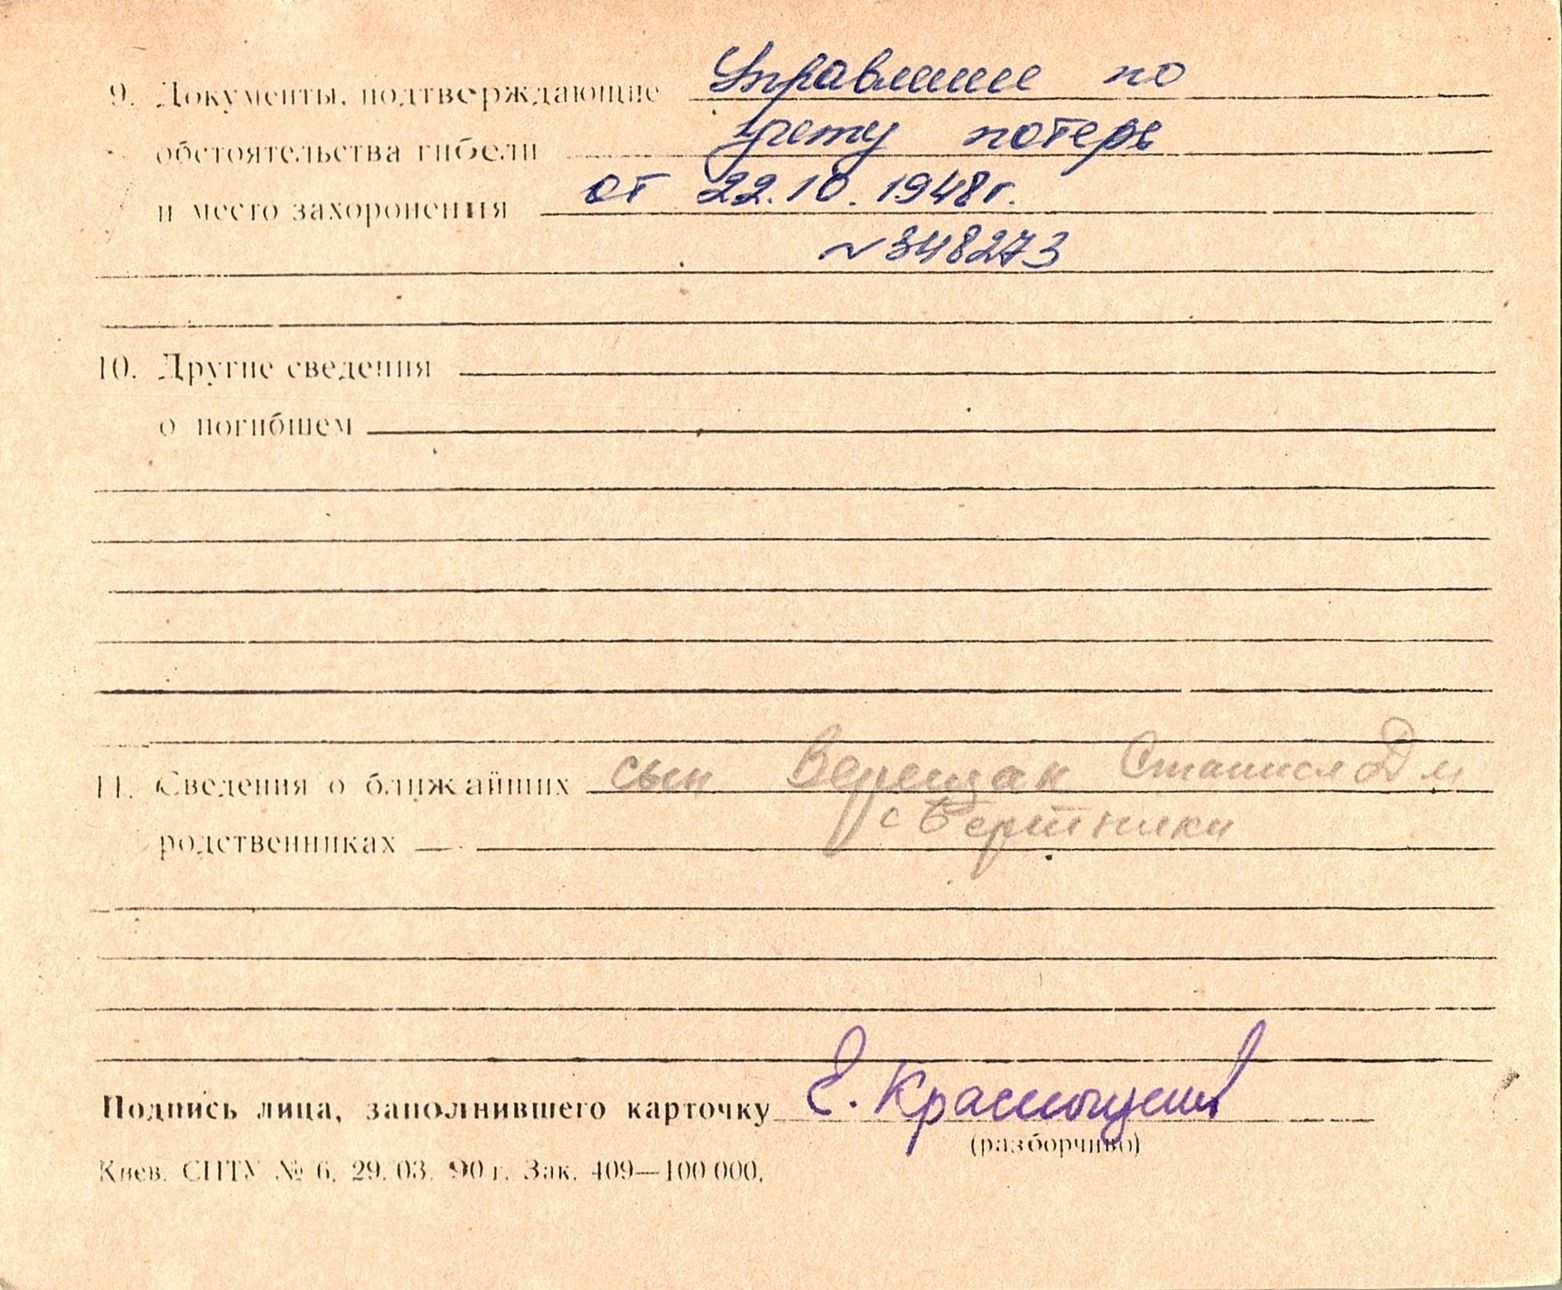 9. Документы, подтверждающие Управление по
обстоятельства гибели учету потерь
и место захоронения от 22.10.1948г.
№348273
10. Другие сведения
о погибшем
11. Сведения о ближайших сын Верещак Станислав Дм
родственниках с Бертники
Подпись лица, заполнившего карточку Е.
(разборчиво)
Киев. СПТУ № 6. 29.03.90 г. Зак. 409—100 000.